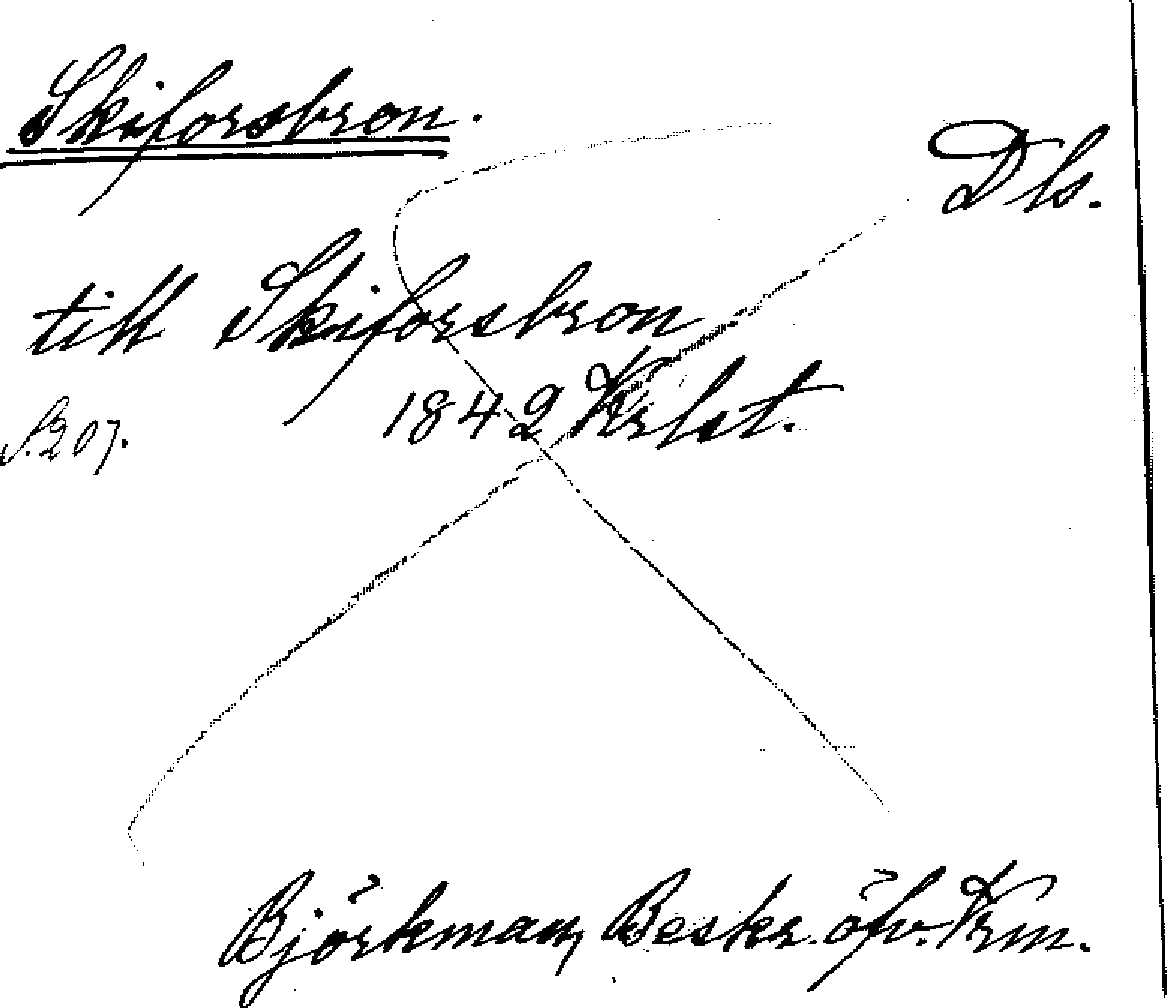 Skiforsbron.
Dls.
till Skiforsbron
1842 Krlst.
S. 207.
Björkman, Beskr. öfv. Vrm.